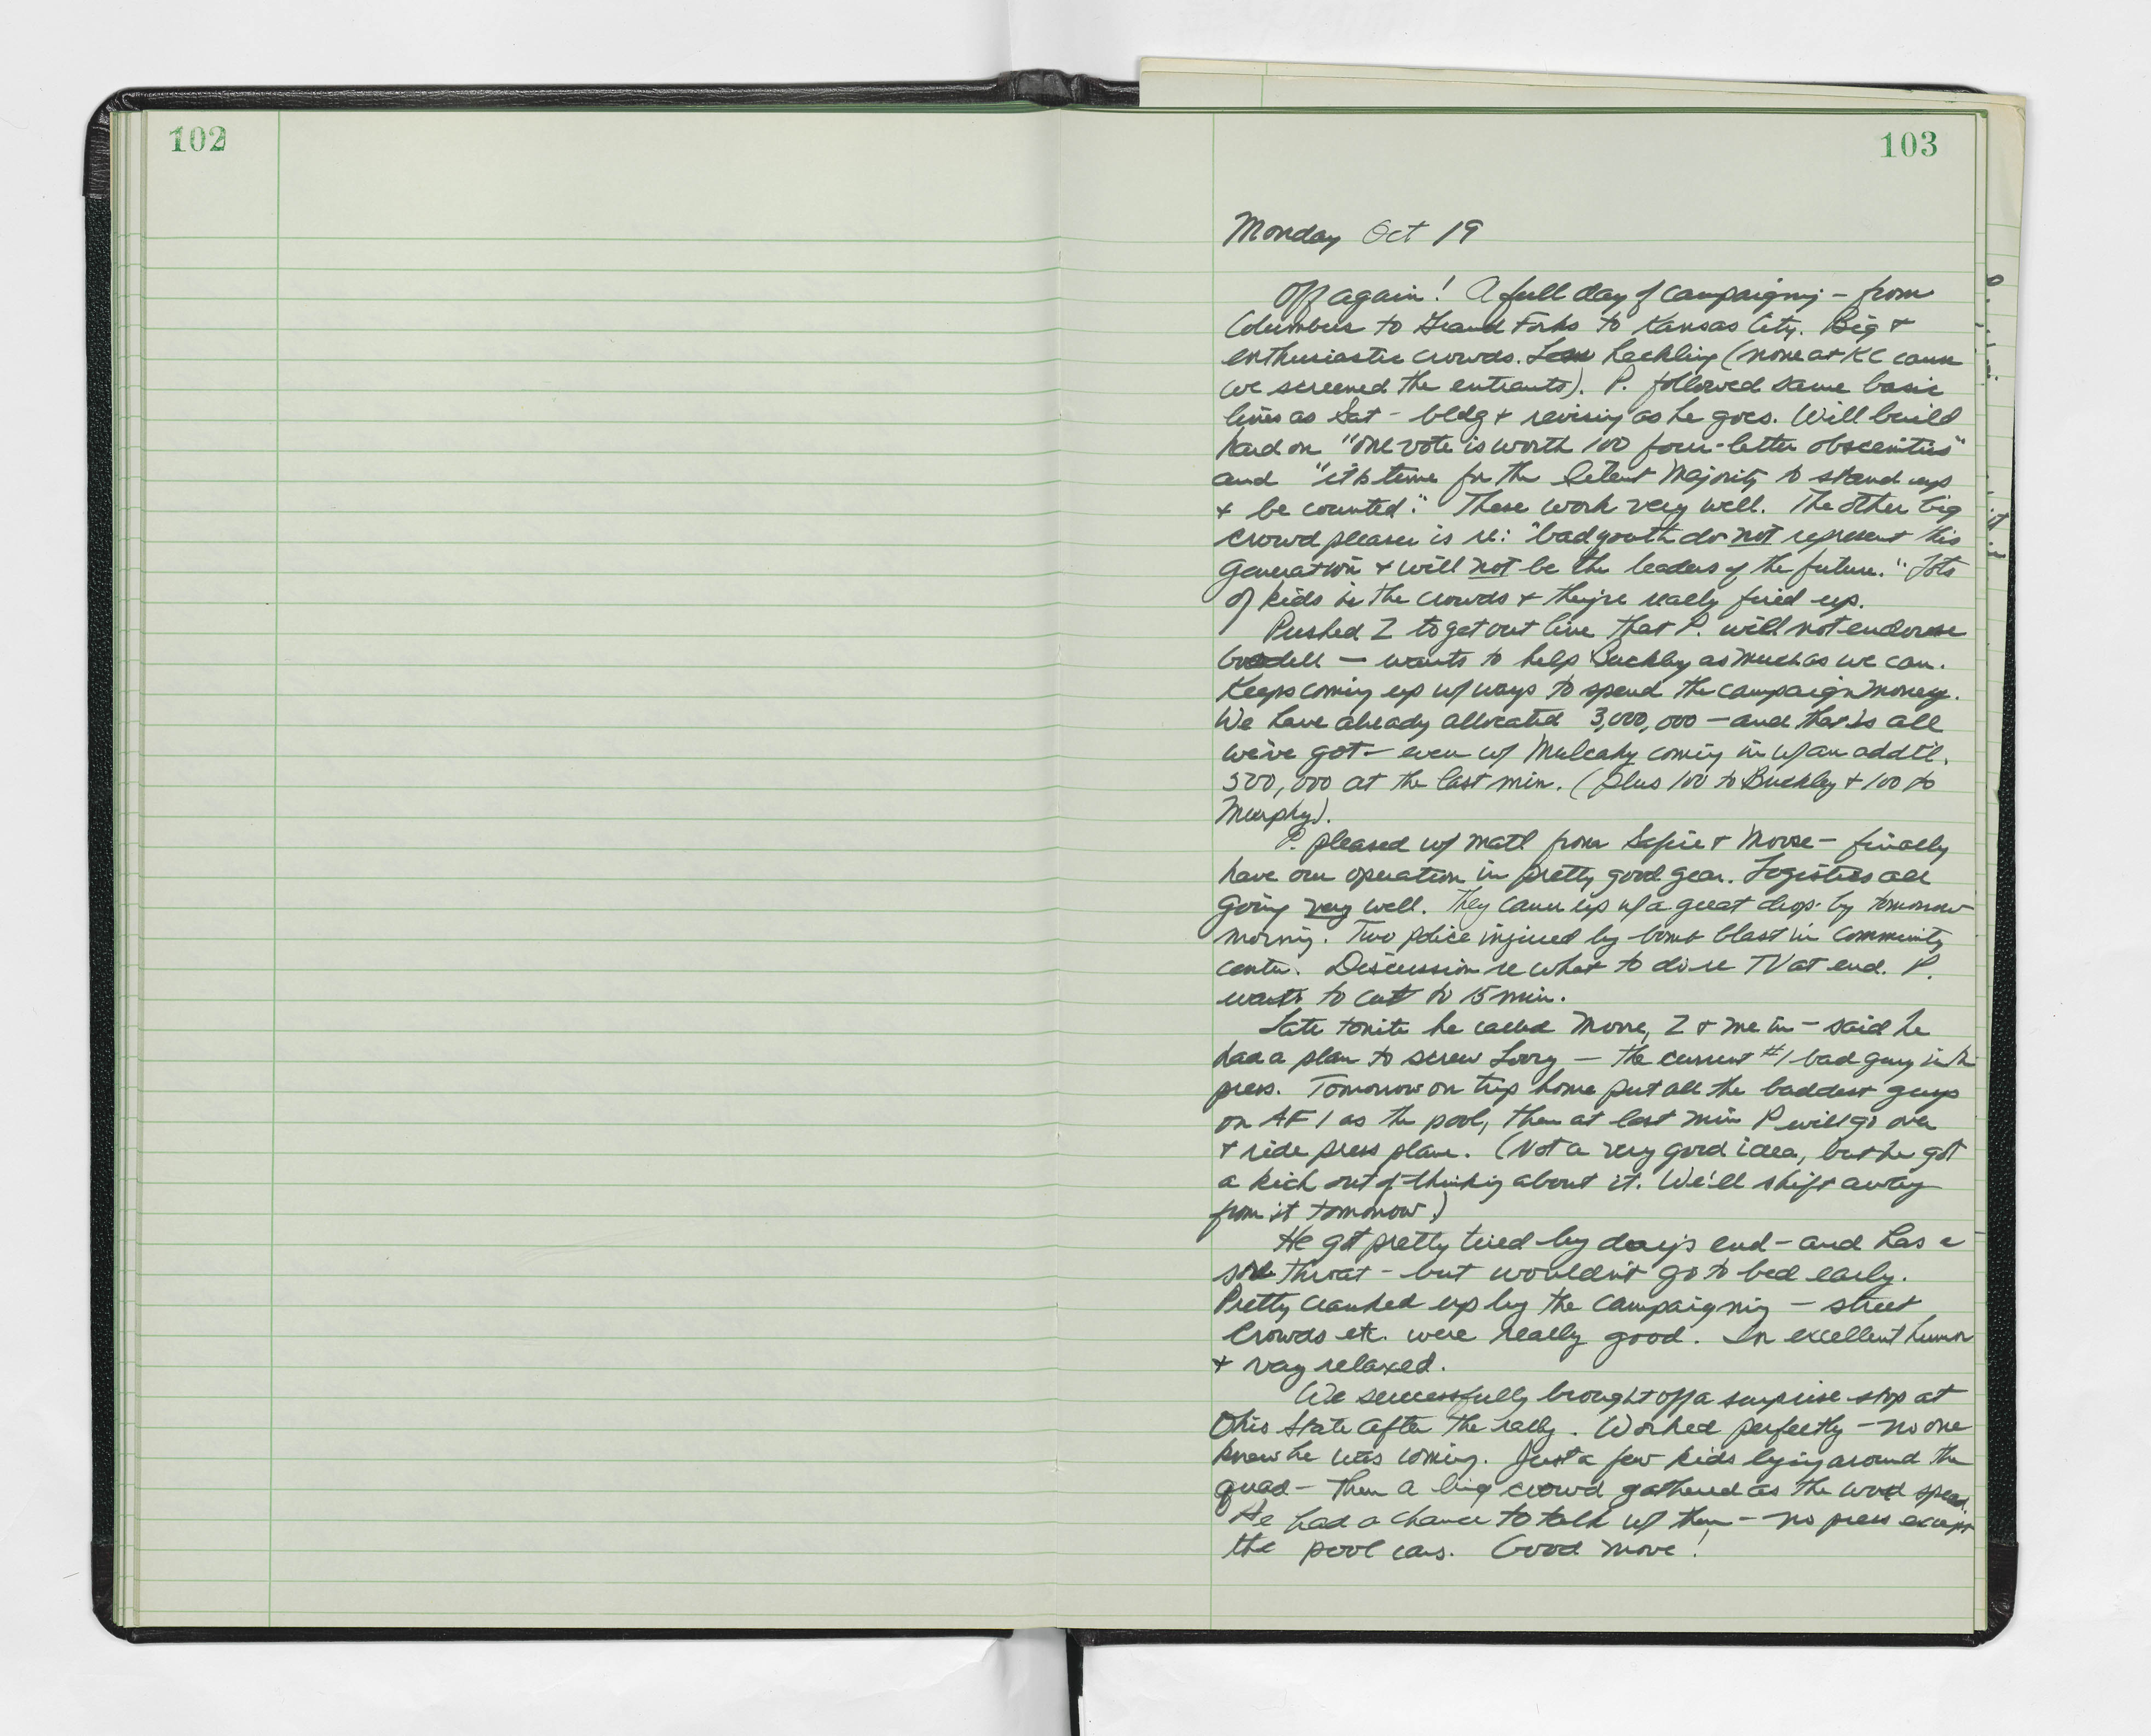 102
103
Monday Oct 19
Off again! A full day of campaigning - from
Columbus to Grand Forks to Kansas City. Big +
enthusiastic crowds. Less heckling (none at KC cause
we screened the entrants). P. followed same basic
lines as Sat - bldg + revising as he goes. Will build
hard on "one vote is worth 100 four-letter obscenities"
and "it's time for the Silent Majority to stand up
+ be counted." These work very well. The other big
crowd pleaser is re: "bad youth do not represent this
generation + will not be the leaders of the future." Lots
of kids in the crowds + they're really fired up.
Pushed Z to get out line that P. will not endorse
Goodell — wants to help Buckley as much as we can.
Keeps coming up w/ ways to spend the campaign money.
We have already allocated 3,000,000 — and that is all
we've got - even w/ Mulcahy coming in w/ an addt'l.
500,000 at the last min. (plus 100 to Buckley + 100 to
Murphy).
P. pleased w/ matl from Safire + Moore - finally
have our operation in pretty good gear. Logistics all
going very well. They came up w/ a great drop-by tomorrow
morning. Two police injured by bomb blast in community
center. Discussion re what to do re TV at end. P.
wants to cut to 15 min.
Late tonite he called Moore, Z + me in - said he
had a plan to screw Loory — the current #1 bad guy in the
press. Tomorrow on trip home put all the baddest guys
on AF 1 as the pool, then at last min P will go over
+ ride press plane. (Not a very good idea, but he got
a kick out of thinking about it. We'll shift away
from it tomorrow)
He got pretty tired by day's end - and has a
sore throat - but wouldn't go to bed early.
Pretty cranked up by the campaigning - street
crowds etc. were really good. In excellent humor
+ very relaxed.
We successfully brought off a surprise stop at
Ohio State after the rally. Worked perfectly - no one
knew he was coming. Just a few kids lying around the
quad - then a big crowd gathered as the word spread.
He had a chance to talk w/ them - no press except
the pool cars. Good move!